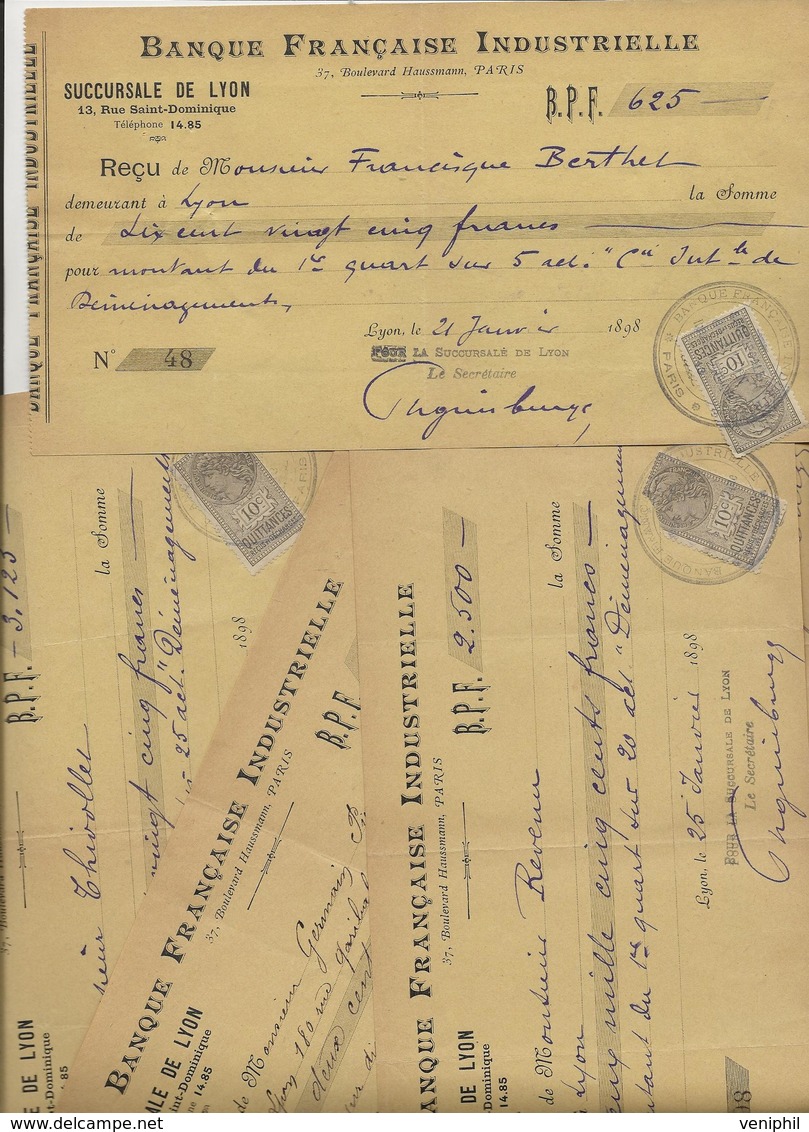 BANQUE FRANÇAISE INDUSTRIELLE
37, Boulevard Haussmann, PARIS
SUCCURSALE DE LYON
13, Rue Saint-Dominique
Téléphone 14.85
B.P.F. 625
BANQUE FRANÇAISE INDUSTRIELLE
Reçu de Monsieur Francisque Berthet
demeurant à Lyon la Somme
de Six cent vingt cinq francs
pour montant du 1er quart sur 5 act. "Cie Int le de
Déménagements
Lyon, le 21 Janvier 1898
N° 48
POUR LA SUCCURSALE DE LYON
Le Secrétaire
BANQUE FRANÇAISE
PARIS
10c QUITTANCES
B.P.F. 3,125
37, Boulevard
la Somme
Thivollet
vingt cinq francs
25 act. "Déménagements
1898
DE LYON
Dominique
14.85
10c
QUITTANCES
PARIS
BANQUE FRANÇAISE INDUSTRIELLE
37, Boulevard Haussmann, PARIS
B.P.F.
DE LYON
Saint-Dominique
14.85
de Monsieur Germain
Lyon 180 rue
deux cent
BANQUE FRANÇAISE INDUSTRIELLE
37, Boulevard Haussmann, PARIS
B.P.F. 2.500
DE LYON
Dominique
14.85
de Monsieur Revenu
Lyon la Somme
mille cinq cents francs
du 1er quart sur 20 act. "Déménagemen
Lyon, le 25 Janvier 1898
POUR LA SUCCURSALE DE LYON
Le Secrétaire
10c
QUITTANCES
BANQUE
INDUSTRIELLE
veniphil